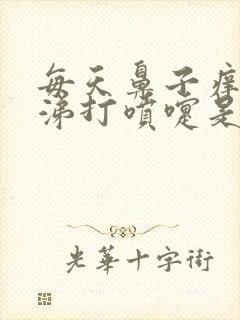 每天鼻子痒
涕打喷嚏是
光華十字街